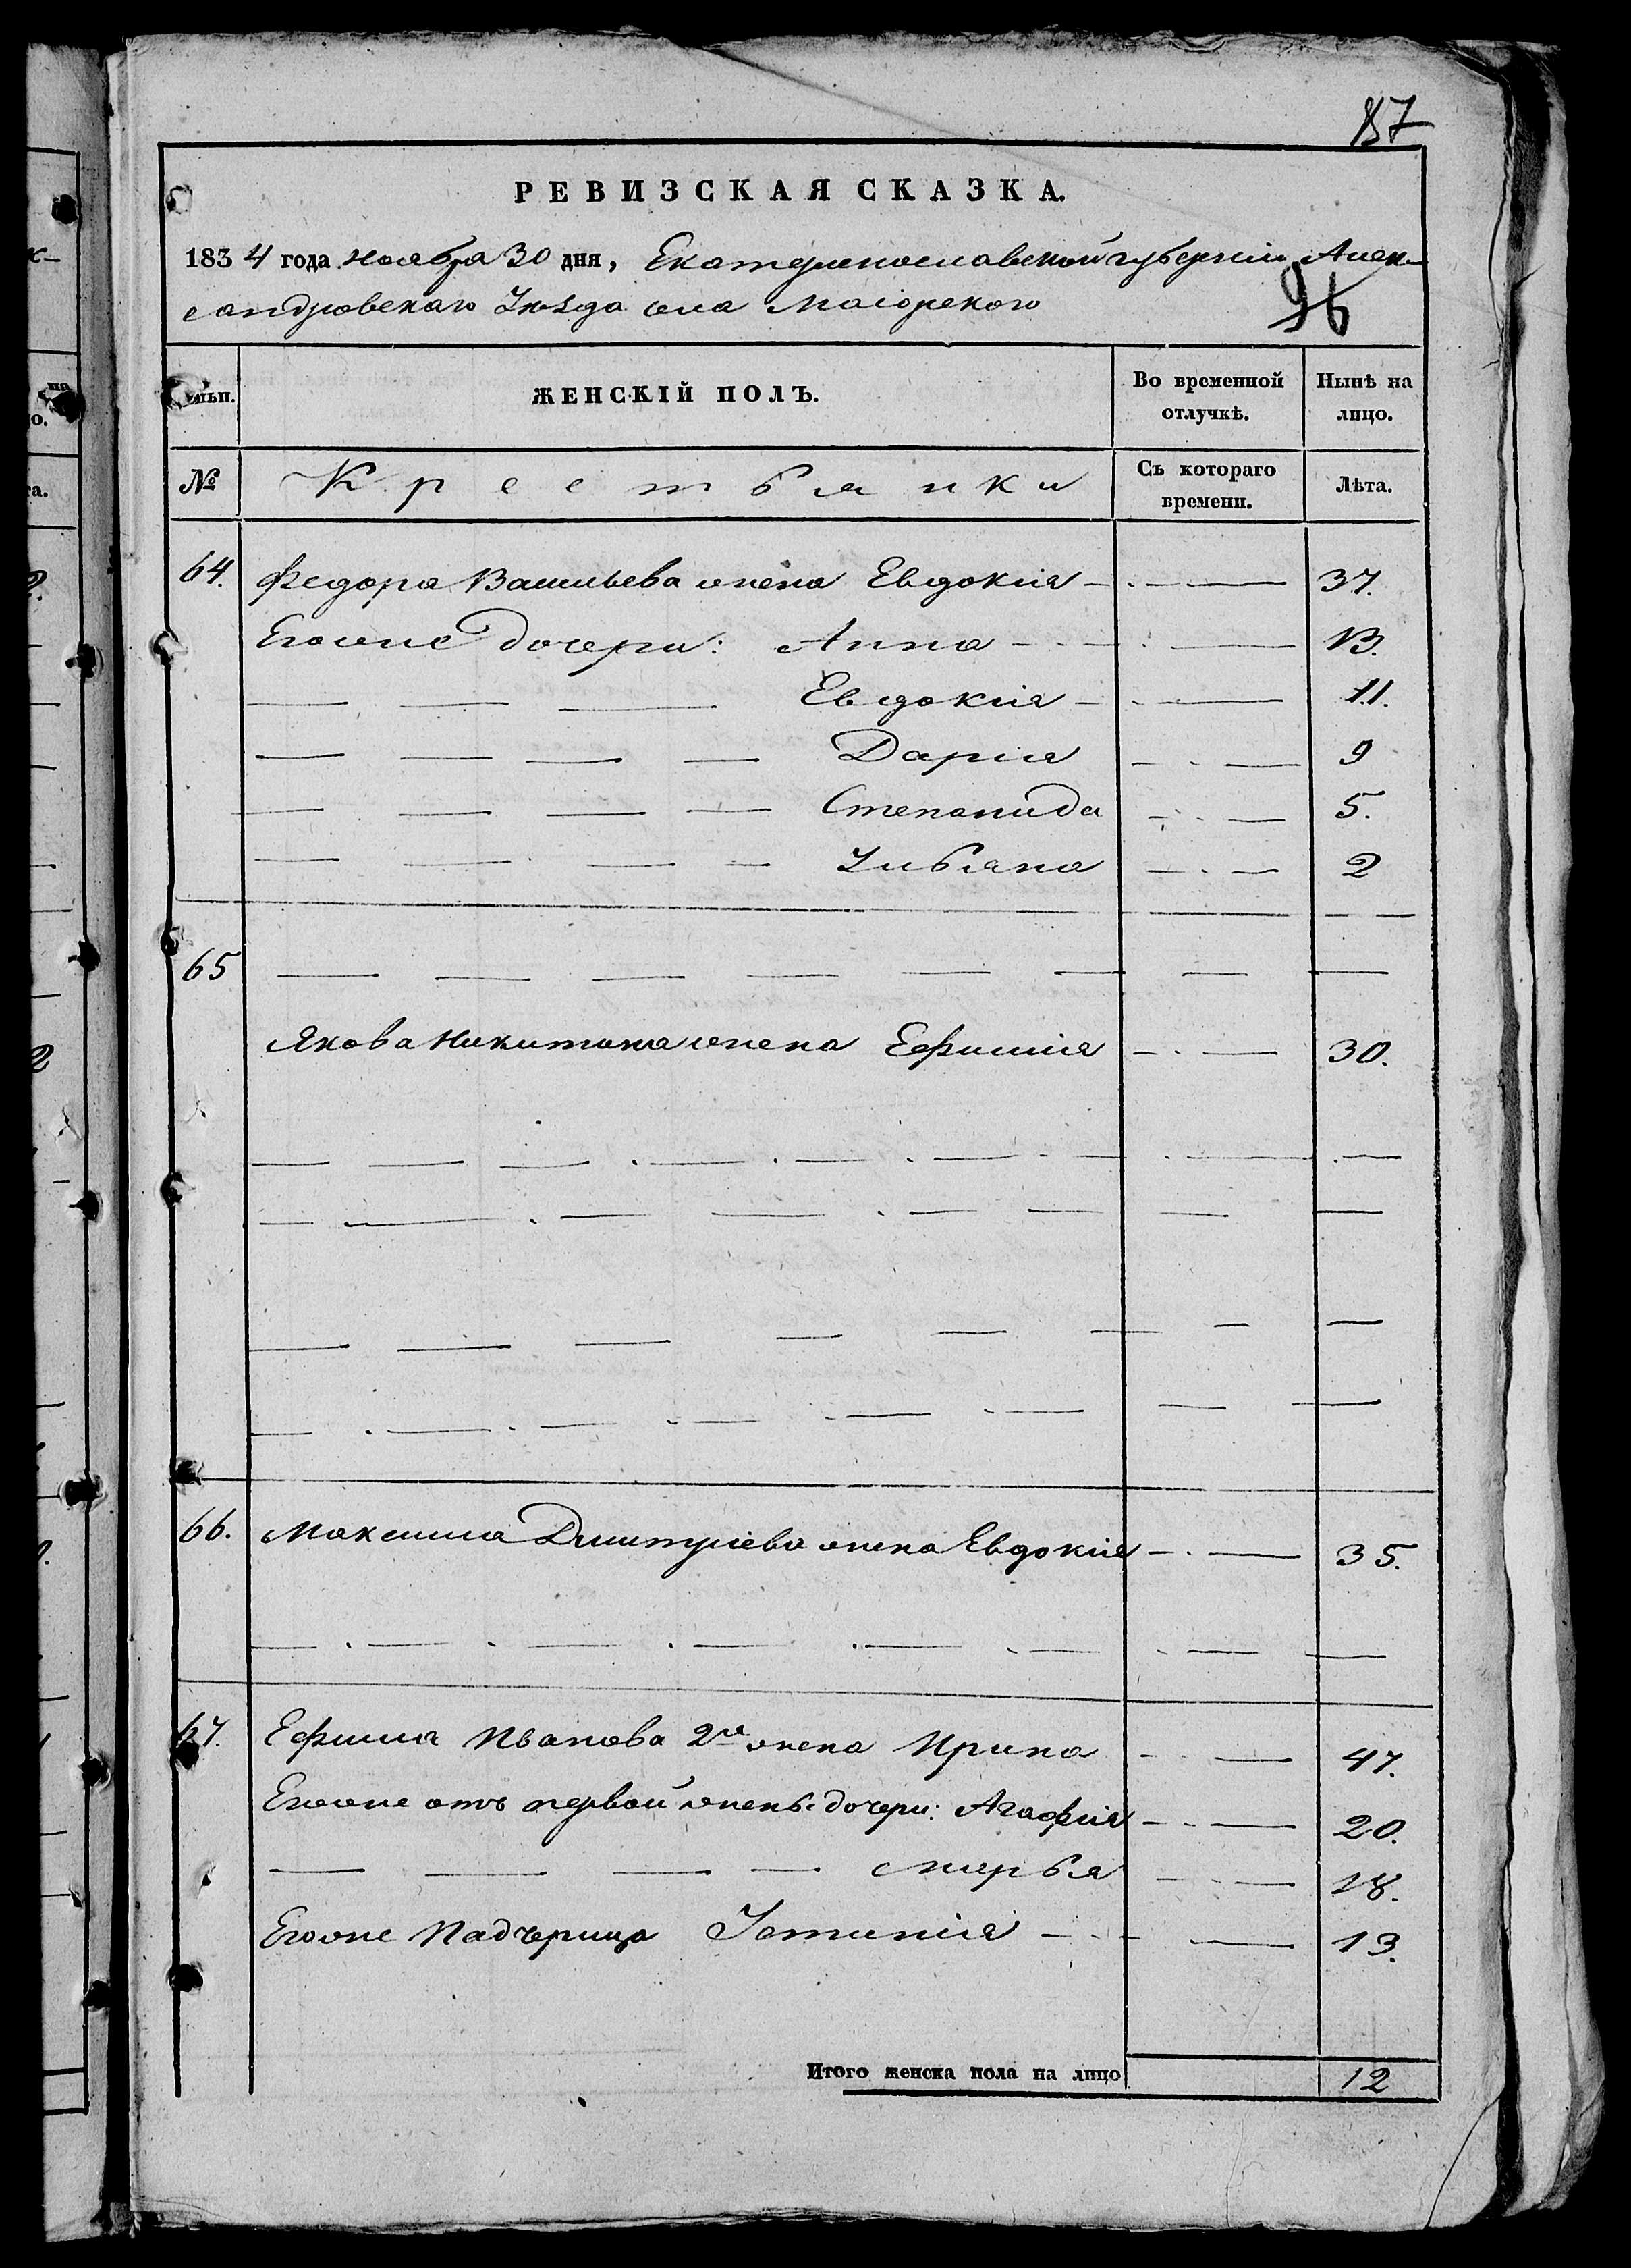 187
РЕВИЗСКАЯ СКАЗКА.
1834 года ноября 30 дня, Екатеринославской губерніи Алек-
сандровскаго Уѣзда села Маіорского
96
ЖЕНСКІЙ ПОЛЪ.
Во временной отлучкѣ.
Нынѣ на лицо.
№
Крестьянки
Съ котораго времени.
Лѣта.
64. Федора Васильева жена Евдокія — · — 37.
Егоже дочери: Анна — · — 13.
— — — Евдокія — · — 11.
— — — — Дарія — · — 9
— — — — Степанида — · — 5.
— — — — Ульяна — · — 2
65 — — — — — — — —
Якова Никитина жена Ефимія — · — 30.
66. Максима Дмитріева жена Евдокія — · — 35.
67. Ефима Иванова 2я жена Ирина — · — 47.
Егоже отъ первой жены дочери: Агафія — · — 20.
— — — — Марья — · — 18.
Егоже Падчерица Устинія — · — 13.
Итого женска пола на лицо 12